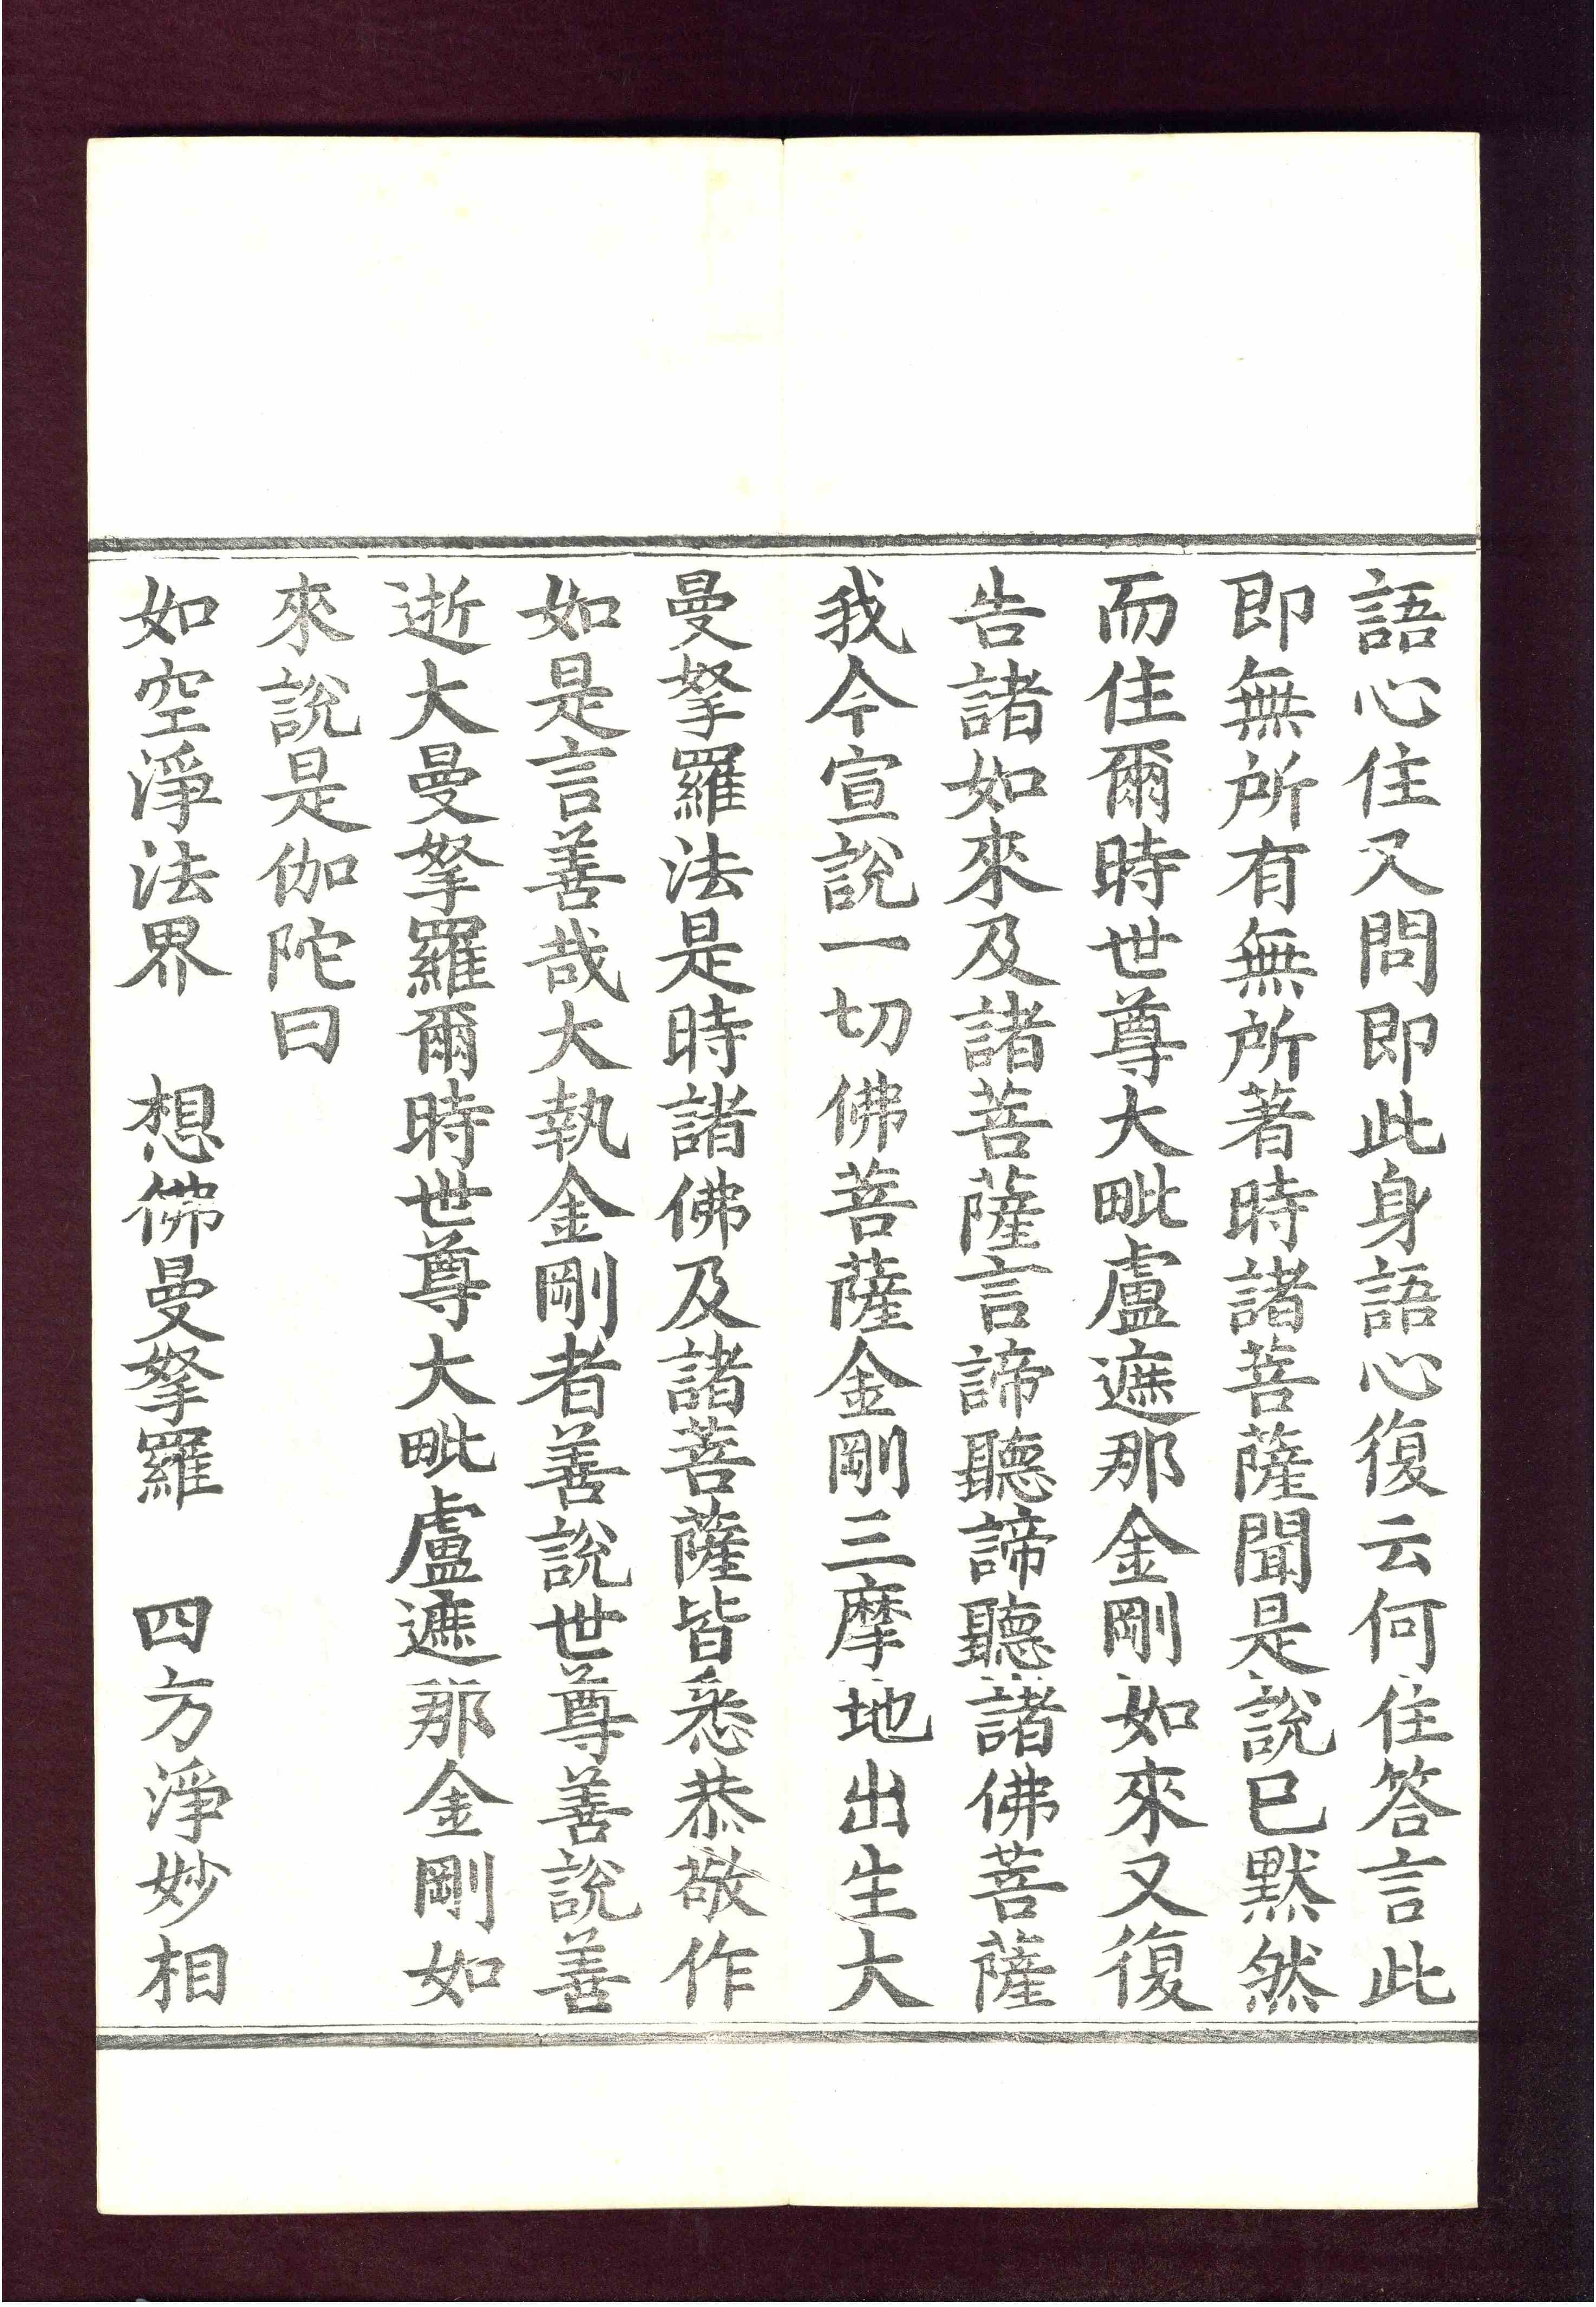 語心住又問即此身語心復云何住答言此
即無所有無所著時諸菩薩聞是說已默然
而住爾時世尊大毗盧遮那金剛如來又復
告諸如來及諸菩薩言諦聽諦聽諸佛菩薩
我今宣說一切佛菩薩金剛三摩地出生大
曼拏羅法是時諸佛及諸菩薩皆悉恭敬作
如是言善哉大執金剛者善說世尊善說善
逝大曼拏羅爾時世尊大毗盧遮那金剛如
來說是伽陀曰
如空淨法界　想佛曼拏羅　四方淨妙相